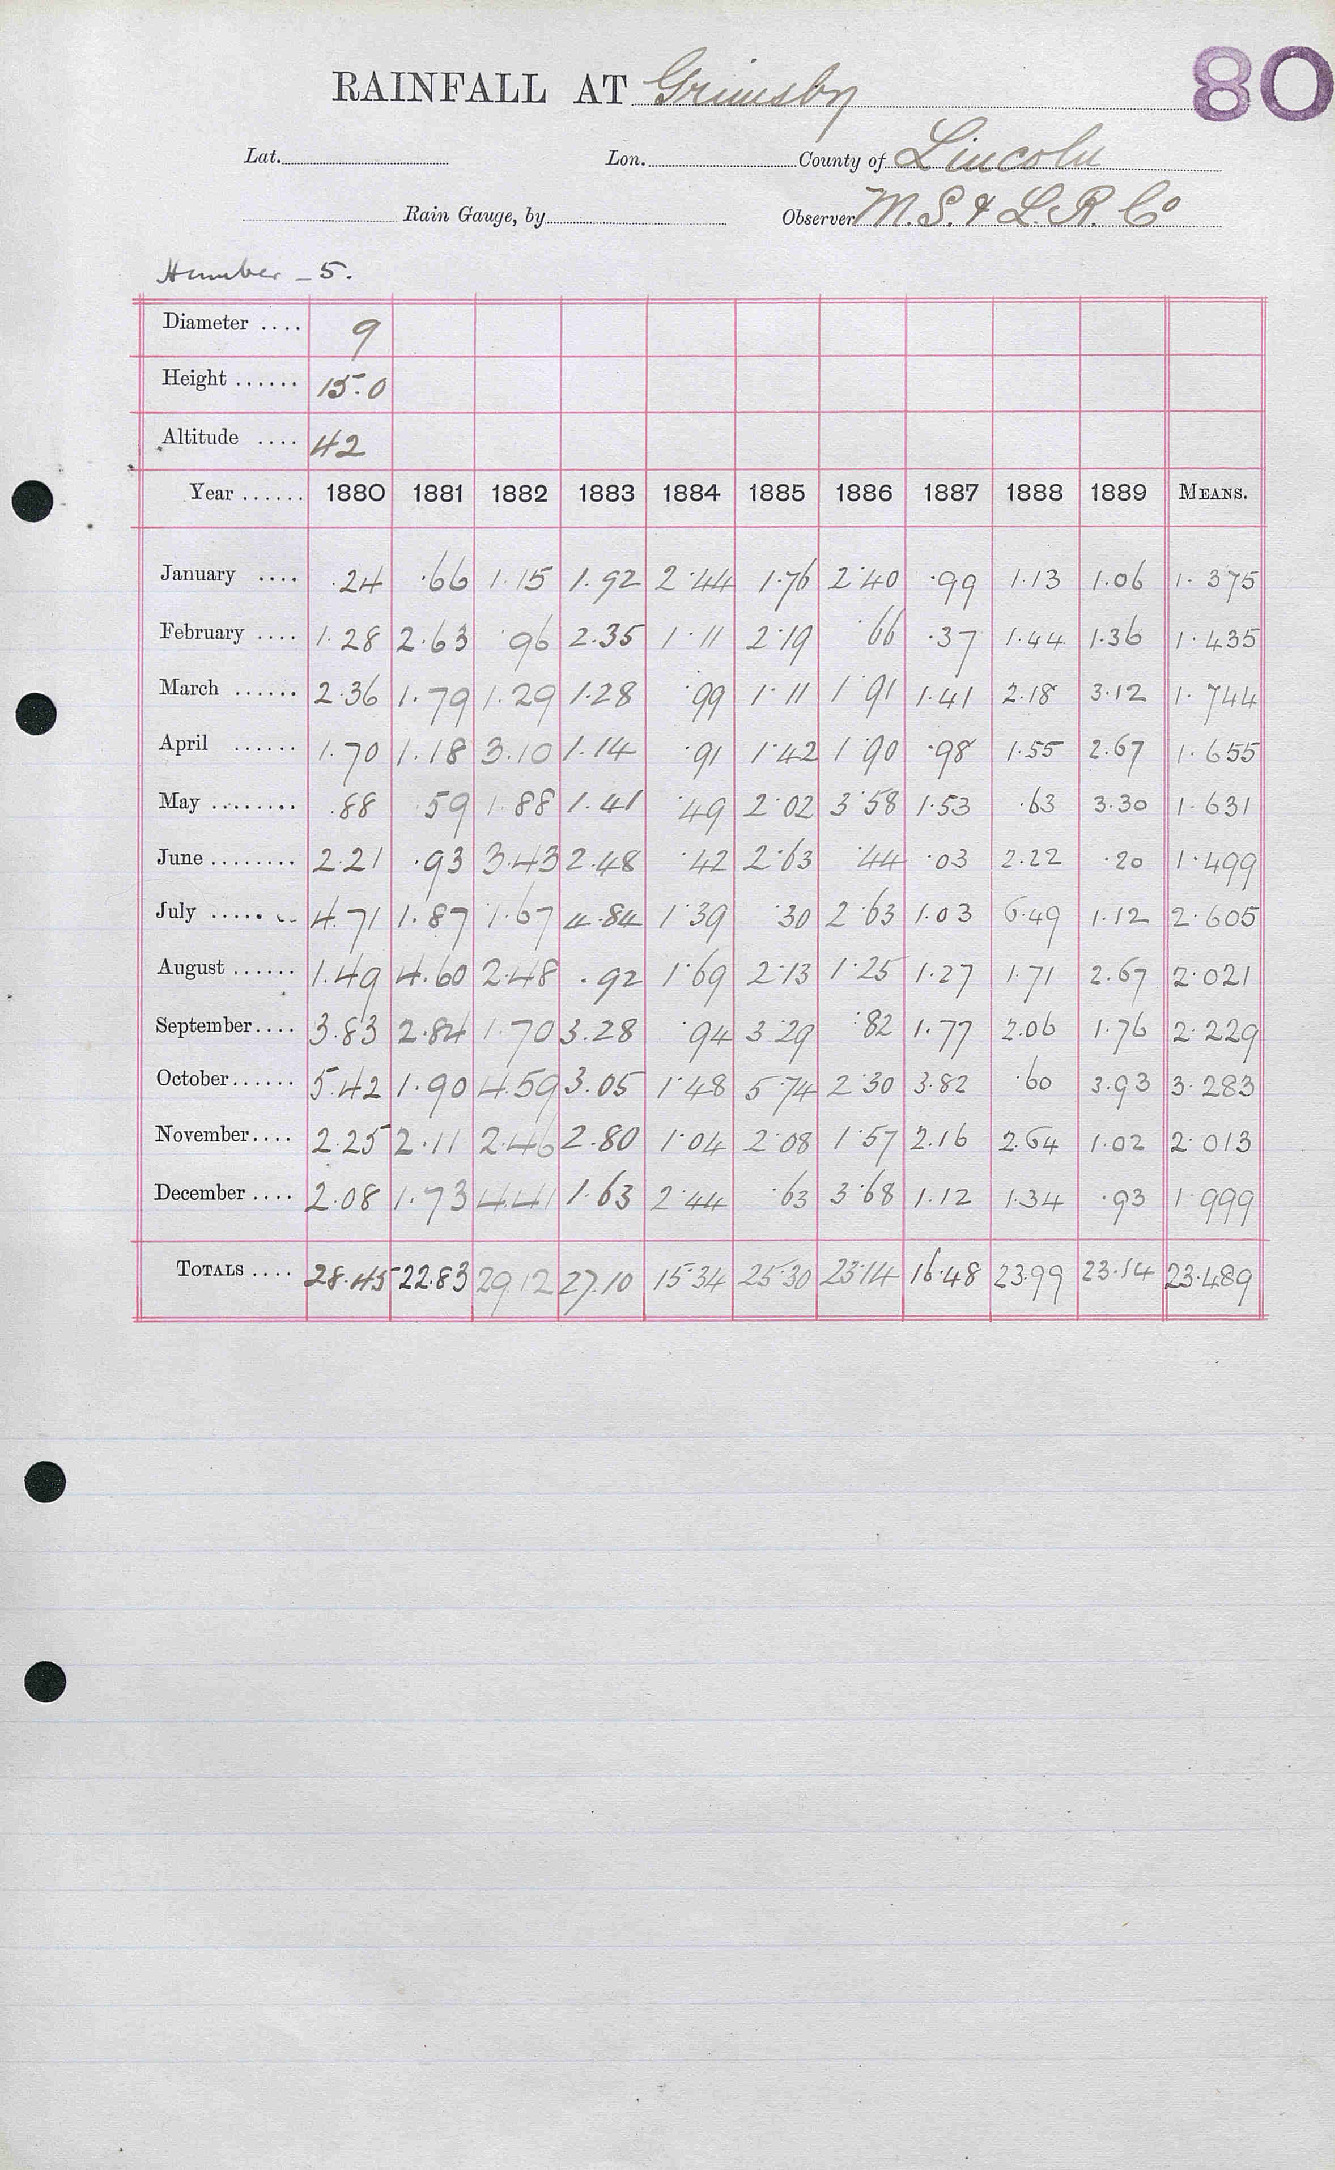 80
RAINFALL AT Grimsby
Lat. Lon. County of Lincoln
Rain Gauge, by Observer M. S. & L. R. Co
Humber - 5.
Diameter .... 9
Height ...... 15.0
Altitude .... 42
Year ...... 1880 1881 1882 1883 1884 1885 1886 1887 1888 1889 MEANS.
January .... .24 .66 1.15 1.92 2.44 1.76 2.40 .99 1.13 1.06 1.375
February .... 1.28 2.63 .96 2.35 1.11 2.19 .66 .37 1.44 1.36 1.435
March ...... 2.36 1.79 1.29 1.28 .99 1.11 1.91 1.41 2.18 3.12 1.744
April ...... 1.70 1.18 3.10 1.14 .91 1.42 1.90 .98 1.55 2.67 1.655
May ........ .88 .59 1.88 1.41 .49 2.02 3.58 1.53 .63 3.30 1.631
June ........ 2.21 .93 3.43 2.48 .42 2.63 .44 .03 2.22 .20 1.499
July ........ 4.71 1.87 1.67 4.84 1.39 .30 2.63 1.03 6.49 1.12 2.605
August ...... 1.49 4.60 2.48 .92 1.69 2.13 1.25 1.27 1.71 2.67 2.021
September .... 3.83 2.84 1.70 3.28 .94 3.29 .82 1.77 2.06 1.76 2.229
October ...... 5.42 1.90 4.59 3.05 1.48 5.74 2.30 3.82 .60 3.93 3.283
November .... 2.25 2.11 2.46 2.80 1.04 2.08 1.57 2.16 2.64 1.02 2.013
December .... 2.08 1.73 4.41 1.63 2.44 .63 3.68 1.12 1.34 .93 1.999
TOTALS .... 28.45 22.83 29.12 27.10 15.34 25.30 23.14 16.48 23.99 23.14 23.489